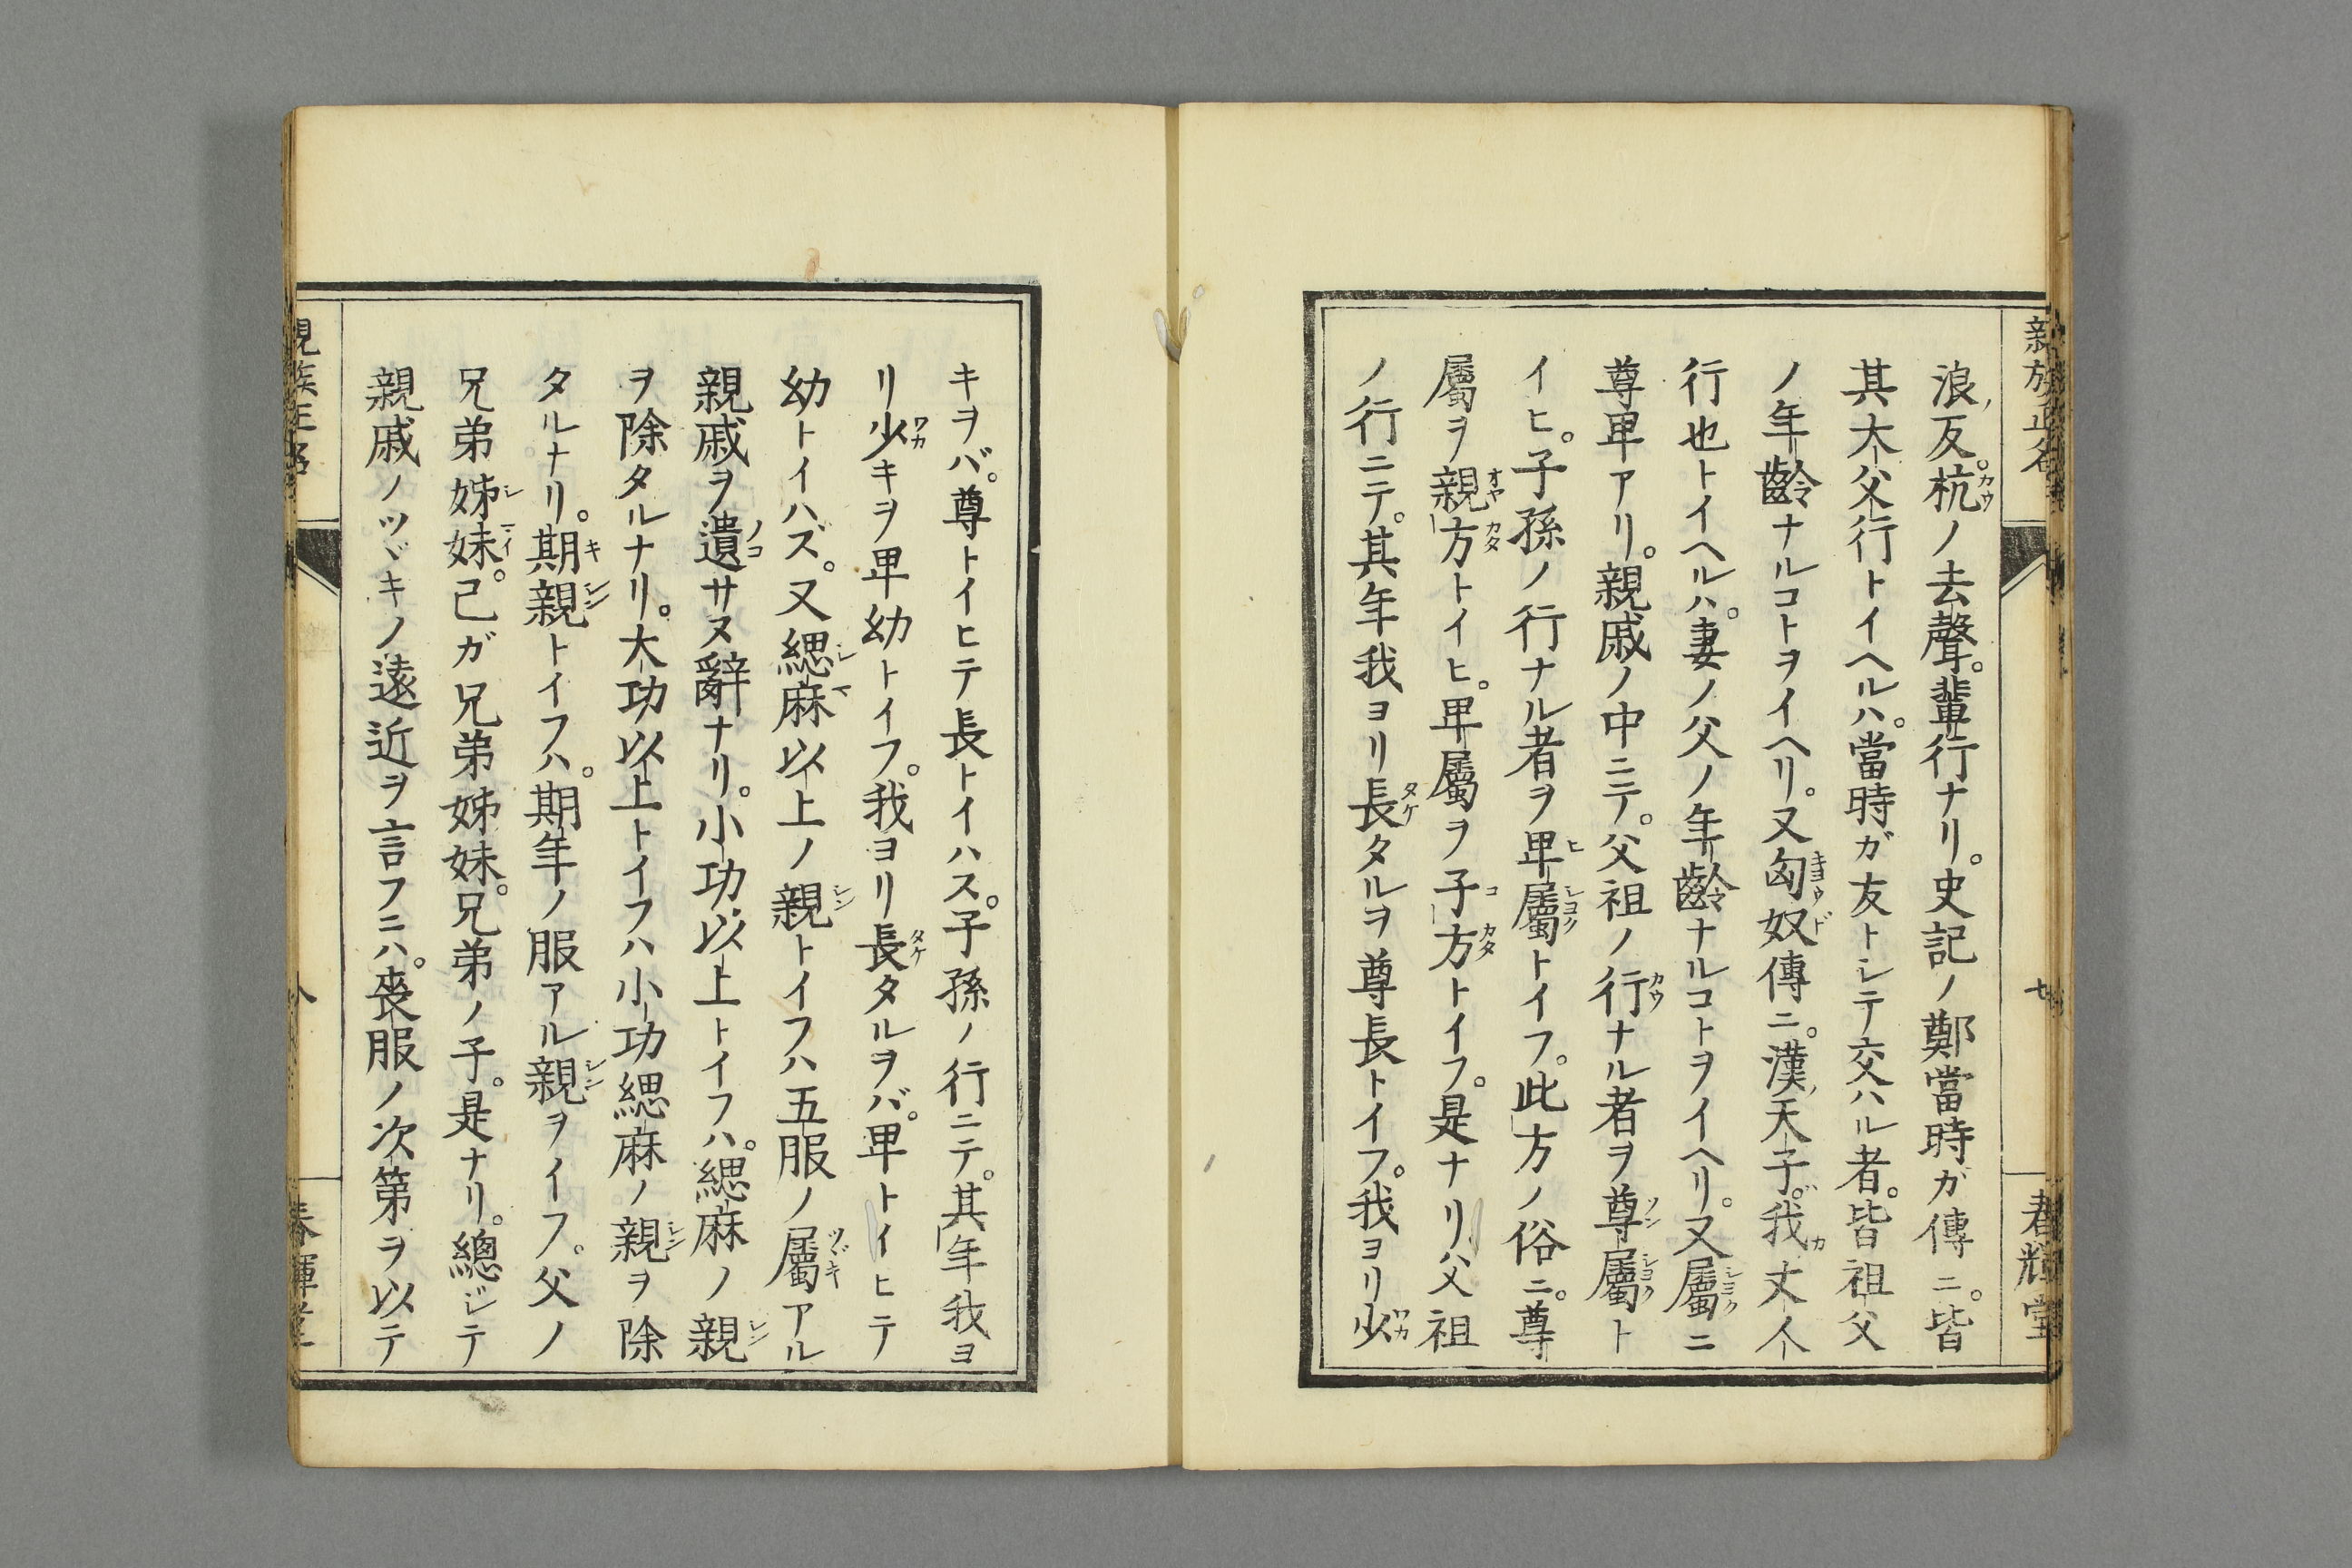 浪ノ反。杭ノ去聲。輩行ナリ。史記ノ鄭當時ガ傳ニ。皆
其大父行トイヘルハ。當時ガ友トシテ交ハル者。皆祖父
ノ年齡ナルコトヲイヘリ。又匈奴傳ニ。漢ノ天子。我丈人
行也トイヘルハ。妻ノ父ノ年齡ナルコトヲイヘリ。又屬ニ
尊卑アリ。親戚ノ中ニテ。父祖ノ行ナル者ヲ尊屬ト
イヒ。子孫ノ行ナル者ヲ卑屬トイフ。此方ノ俗ニ。尊
屬ヲ親方トイヒ。卑屬ヲ子方トイフ。是ナリ父祖
ノ行ニテ。其年我ヨリ長タルヲ尊長トイフ。我ヨリ少
キヲバ。尊トイヒテ長トイハス。子孫ノ行ニテ。其年我ヨ
リ少キヲ卑幼トイフ。我ヨリ長タルヲバ。卑トイヒテ
幼トイハズ。又緦麻以上ノ親トイフハ五服ノ屬アル
親戚ヲ遺サヌ辭ナリ。小功以上トイフハ。緦麻ノ親
ヲ除タルナリ。大功以上トイフハ小功緦麻ノ親ヲ除
タルナリ。期親トイフハ。期年ノ服アル親ヲイフ。父ノ
兄弟姊妹。己ガ兄弟姊妹。兄弟ノ子。是ナリ。總ジテ
親戚ノツヾキノ遠近ヲ言フニハ。喪服ノ次第ヲ以テ